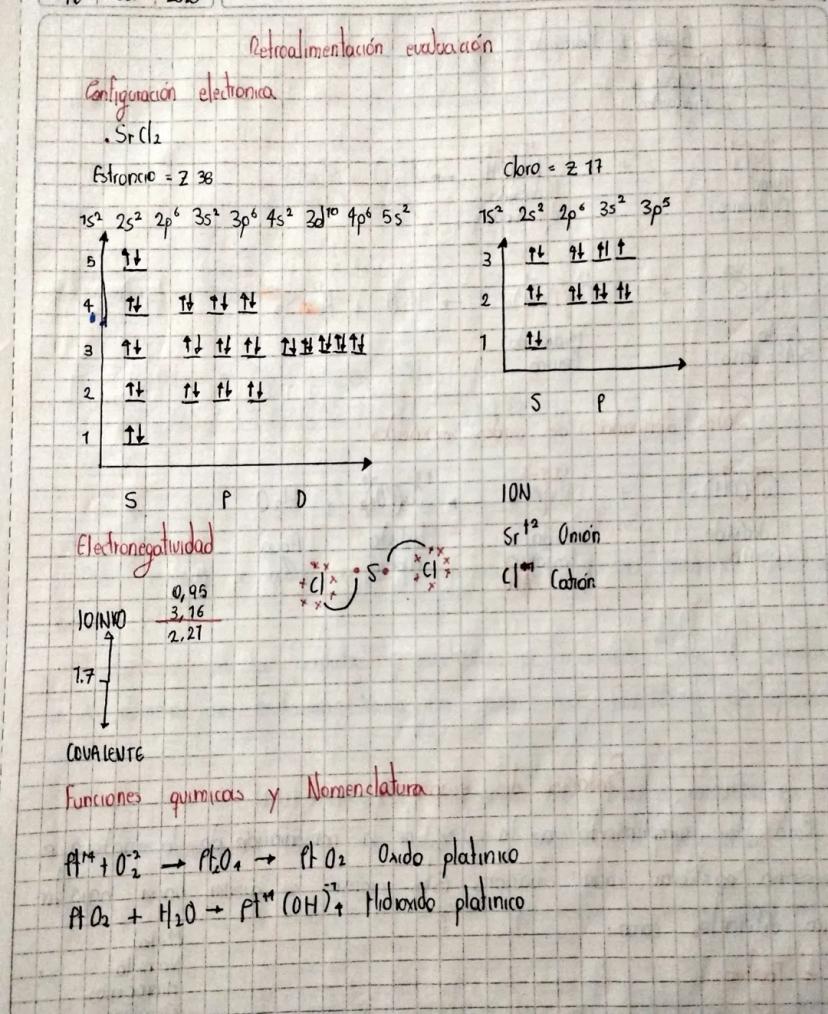 Retroalimentación evaluación
Configuración electronica
. SrCl₂
Estroncio = Z 38
Cloro = Z 17
1s² 2s² 2p⁶ 3s² 3p⁶ 4s² 3d¹⁰ 4p⁶ 5s²
1s² 2s² 2p⁶ 3s² 3p⁵
5 ↑↓
4 ↑↓ ↑↓ ↑↓ ↑↓
3 ↑↓ ↑↓ ↑↓ ↑↓ ↑↓ ↑↓ ↑↓ ↑↓ ↑↓
2 ↑↓ ↑↓ ↑↓ ↑↓
1 ↑↓
S P D
3 ↑↓ ↑↓ ↑↓ ↑
2 ↑↓ ↑↓ ↑↓ ↑↓
1 ↑↓
S P
ION
Sr⁺² Onión
Cl Catión
Electronegatividad
Cl S Cl
0,95
3,16
2,21
IOINKO
1.7
COVALENTE
Funciones quimicas y Nomenclatura
Pt⁺⁴ + O₂⁻² → Pt₂O₄ → PtO₂ Oxido platinico
PtO₂ + H₂O → Pt⁺⁴ (OH)₄⁻¹ Hidroxido platinico